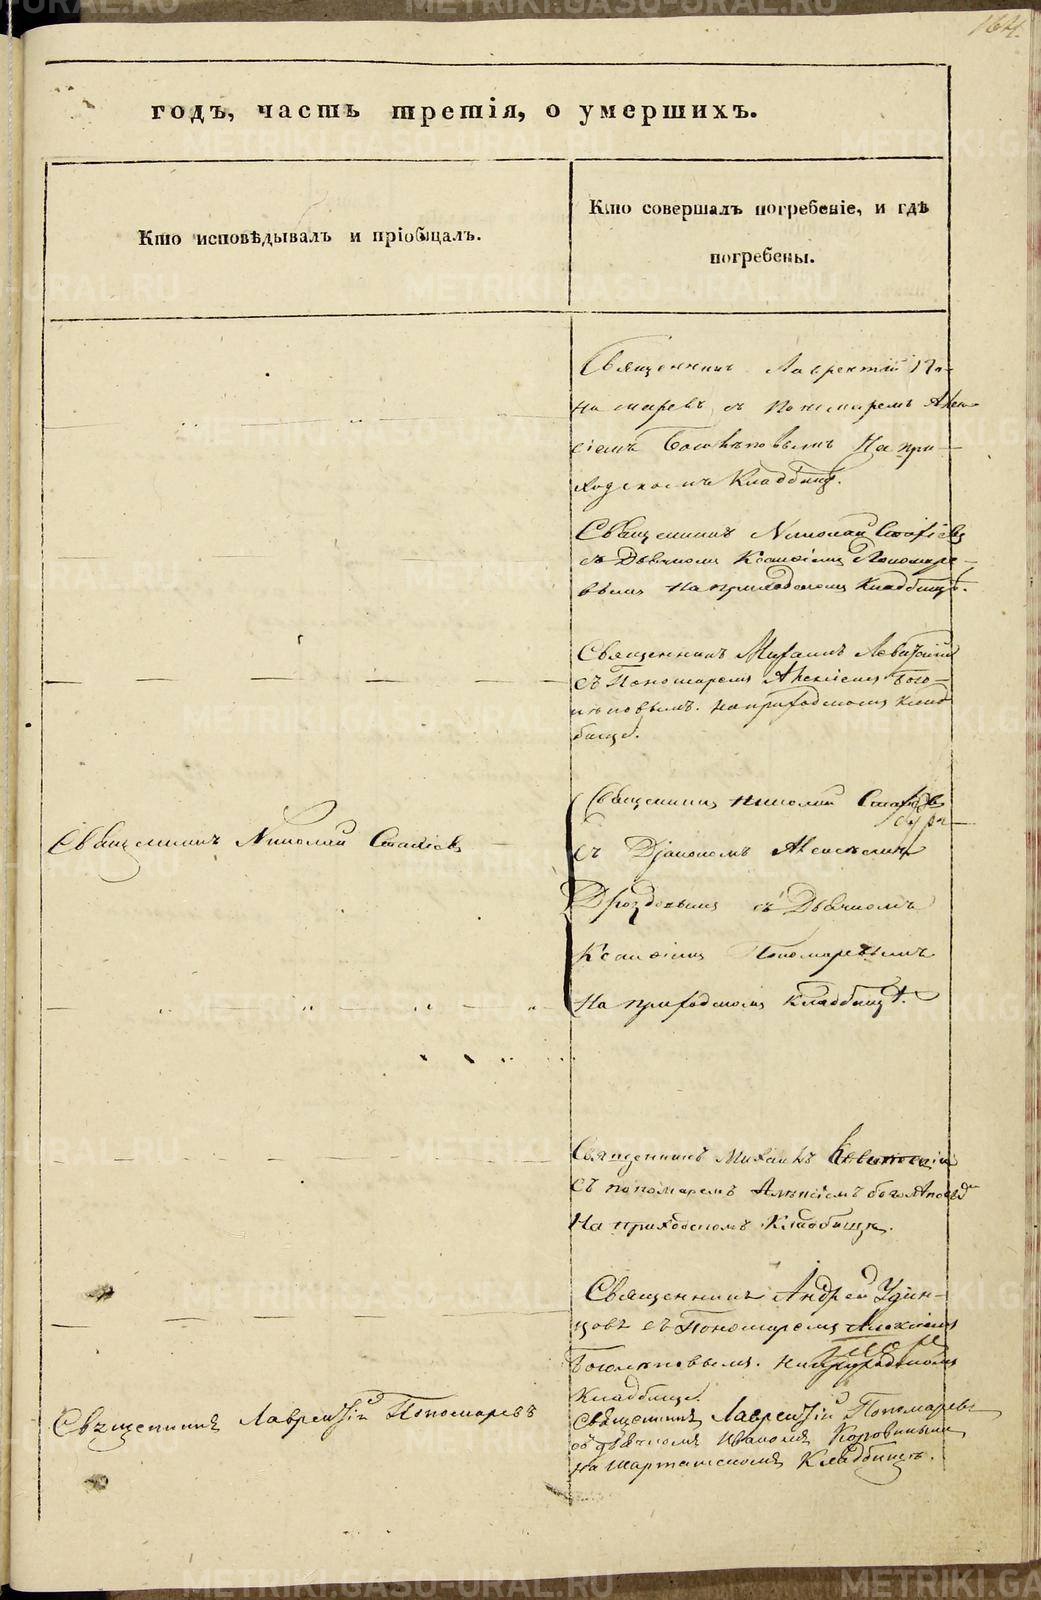 164.
годъ, часть третія, о умершихъ.
Кто исповѣдывалъ и пріобщалъ.
Кто совершалъ погребеніе, и гдѣ
погребены.
Священникъ Лаврентій По-
номаревъ съ Пономаремъ Алек-
сіемъ Боголѣповымъ На при-
ходскомъ Кладбищѣ.
Священникъ Николай Стафіевъ
съ Дьячкомъ Пономаре-
вымъ На приходскомъ Кладбищѣ.
Священникъ Михаилъ Левитскій
съ Пономаремъ Алексіемъ Бого-
лѣповымъ. На приходскомъ Клад-
бищѣ.
Священникъ Николай Стафіевъ
Священникъ Николай Стафіевъ
съ Діакономъ Алексѣемъ
Дроздовымъ съ Дьячкомъ
Пономаревымъ
На приходскомъ Кладбищѣ.
Священникъ Михаилъ Левитскій
съ пономаремъ Алексіемъ
На приходскомъ Кладбищѣ.
Священникъ Андрей Удин-
цовъ съ Пономаремъ Алексіемъ
Боголѣповымъ. На приходскомъ
Кладбищѣ
Священникъ Лаврентій Пономаревъ
Священникъ Лаврентій Пономаревъ
съ дьячкомъ Иваномъ Коровинымъ
на Шарташскомъ Кладбищѣ.
METRIKI.GASO-URAL.RU